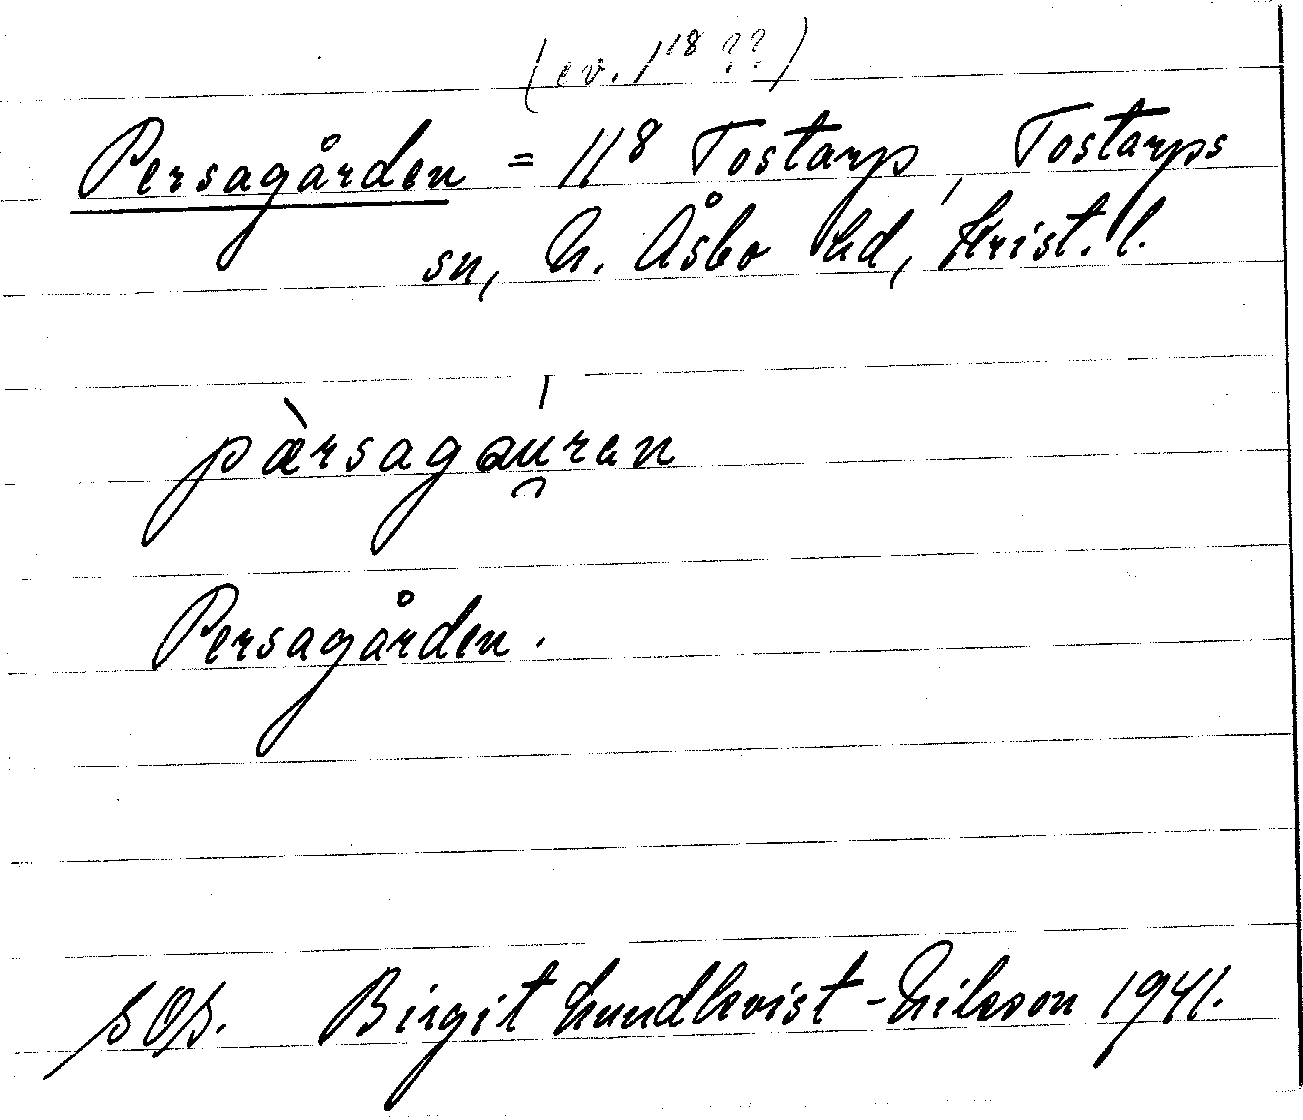 (ev. 1¹⁸ ??)
Persagården = 11⁸ Tostarp, Tostarps
sn, N. Åsbo hd, Krist. l.
pàrsagáu̯ren
Persagården.
SOS. Birgit Lundkvist-Nilsson 1941.